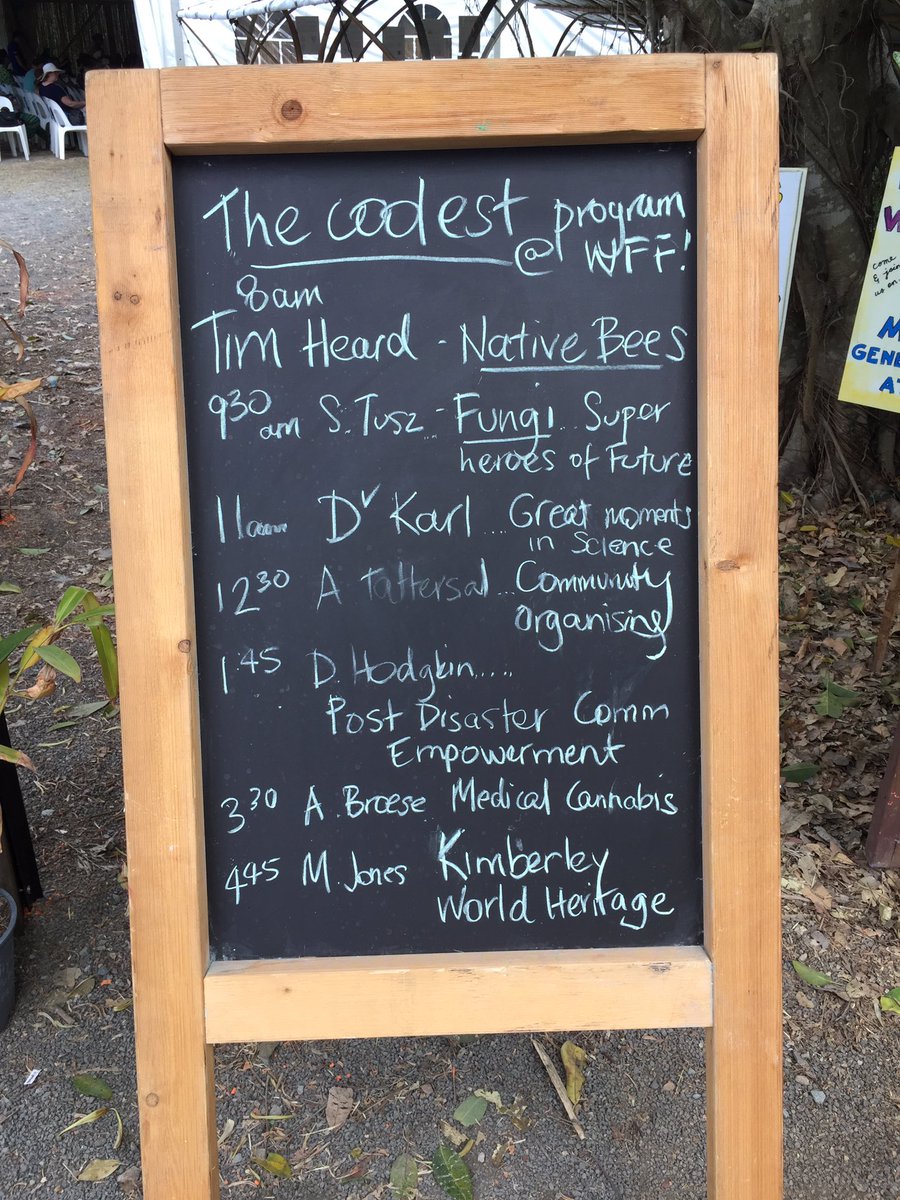 The coolest program
@ WFF!
8am
Tim Heard - Native Bees
9 30 am S. Tusz... Fungi... Super
heroes of Future
11am Dr Karl ... Great moments
in Science
12 30 A Tattersal ... Community
Organising
1 45 D. Hodgkin.....
Post Disaster Comm
Empowerment
3 30 A. Broese Medical Cannabis
4 45 M. Jones Kimberley
World Heritage
come
& join
us on
GENE
AT